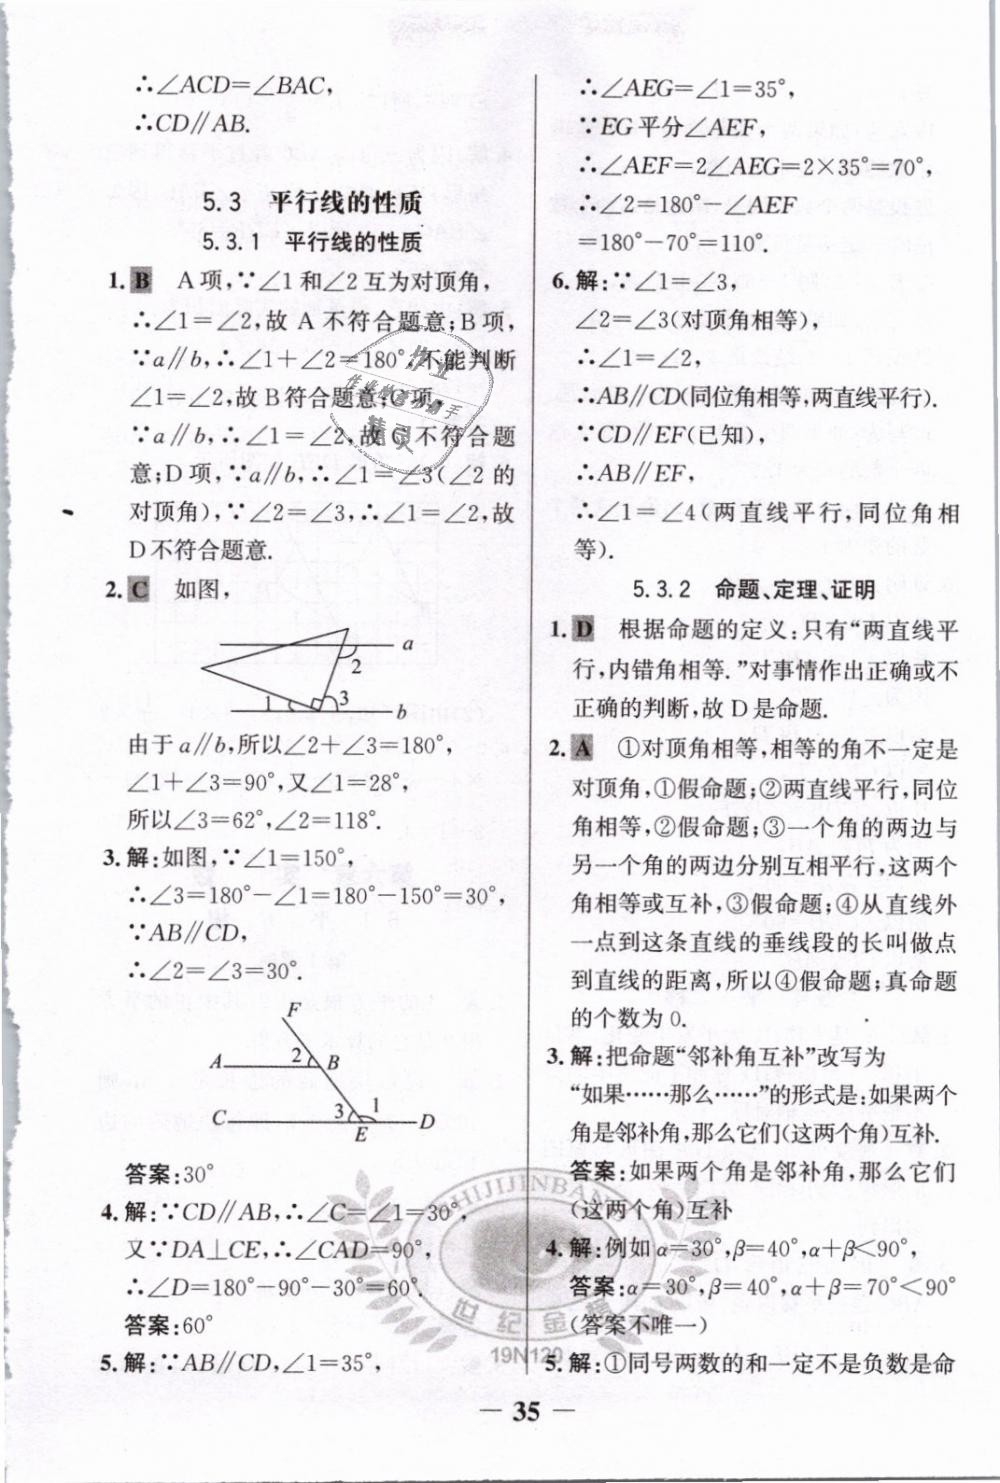 ∴∠ACD=∠BAC,
∴CD∥AB.
5.3 平行线的性质
5.3.1 平行线的性质
1. B A项,∵∠1和∠2互为对顶角,
∴∠1=∠2,故 A 不符合题意;B项,
∵a∥b,∴∠1+∠2=180°,不能判断
∠1=∠2,故B符合题意;C项,
∵a∥b,∴∠1=∠2,故C不符合题
意;D项,∵a∥b,∴∠1=∠3(∠2的
对顶角),∵∠2=∠3,∴∠1=∠2,故
D不符合题意.
2. C 如图,
a
2
1
3
b
由于a∥b,所以∠2+∠3=180°,
∠1+∠3=90°,又∠1=28°,
所以∠3=62°,∠2=118°.
3. 解:如图,∵∠1=150°,
∴∠3=180°-∠1=180°-150°=30°,
∵AB∥CD,
∴∠2=∠3=30°.
F
A 2 B
C 3 1 D
E
答案:30°
4. 解:∵CD∥AB,∴∠C=∠1=30°,
又∵DA⊥CE,∴∠CAD=90°,
∴∠D=180°-90°-30°=60°.
答案:60°
5. 解:∵AB∥CD,∠1=35°,
∴∠AEG=∠1=35°,
∵EG平分∠AEF,
∴∠AEF=2∠AEG=2×35°=70°,
∴∠2=180°-∠AEF
=180°-70°=110°.
6. 解:∵∠1=∠3,
∠2=∠3(对顶角相等),
∴∠1=∠2,
∴AB∥CD(同位角相等,两直线平行).
∵CD∥EF(已知),
∴AB∥EF,
∴∠1=∠4(两直线平行,同位角相
等).
5.3.2 命题、定理、证明
1. D 根据命题的定义:只有“两直线平
行,内错角相等.”对事情作出正确或不
正确的判断,故D是命题.
2. A ①对顶角相等,相等的角不一定是
对顶角,①假命题;②两直线平行,同位
角相等,②假命题;③一个角的两边与
另一个角的两边分别互相平行,这两个
角相等或互补,③假命题;④从直线外
一点到这条直线的垂线段的长叫做点
到直线的距离,所以④假命题;真命题
的个数为0.
3. 解:把命题“邻补角互补”改写为
“如果……那么……”的形式是:如果两个
角是邻补角,那么它们(这两个角)互补.
答案:如果两个角是邻补角,那么它们
(这两个角)互补
4. 解:例如α=30°,β=40°,α+β<90°,
答案:α=30°,β=40°,α+β=70°<90°
(答案不唯一)
5. 解:①同号两数的和一定不是负数是命
作业
作业的答案精手
精灵
SHIJIJINBANG
世纪金榜
19N120
— 35 —